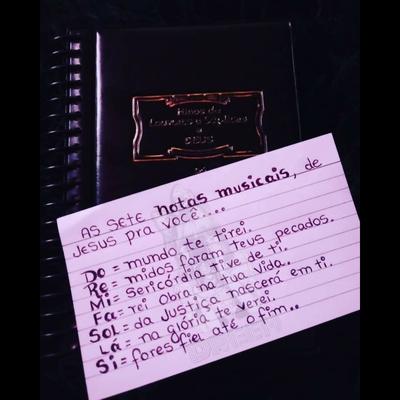 Hinos de
Louvores e Súplicas
a
DEUS
As sete notas musicais, de
Jesus pra você....
Do = mundo te tirei.
Re = midos foram teus pecados.
Mi = sericórdia tive de ti.
Fa = rei Obra na tua vida..
Sol = da Justiça nascerá em ti.
Lá = na glória te verei.
Si = fores fiel até o fim..